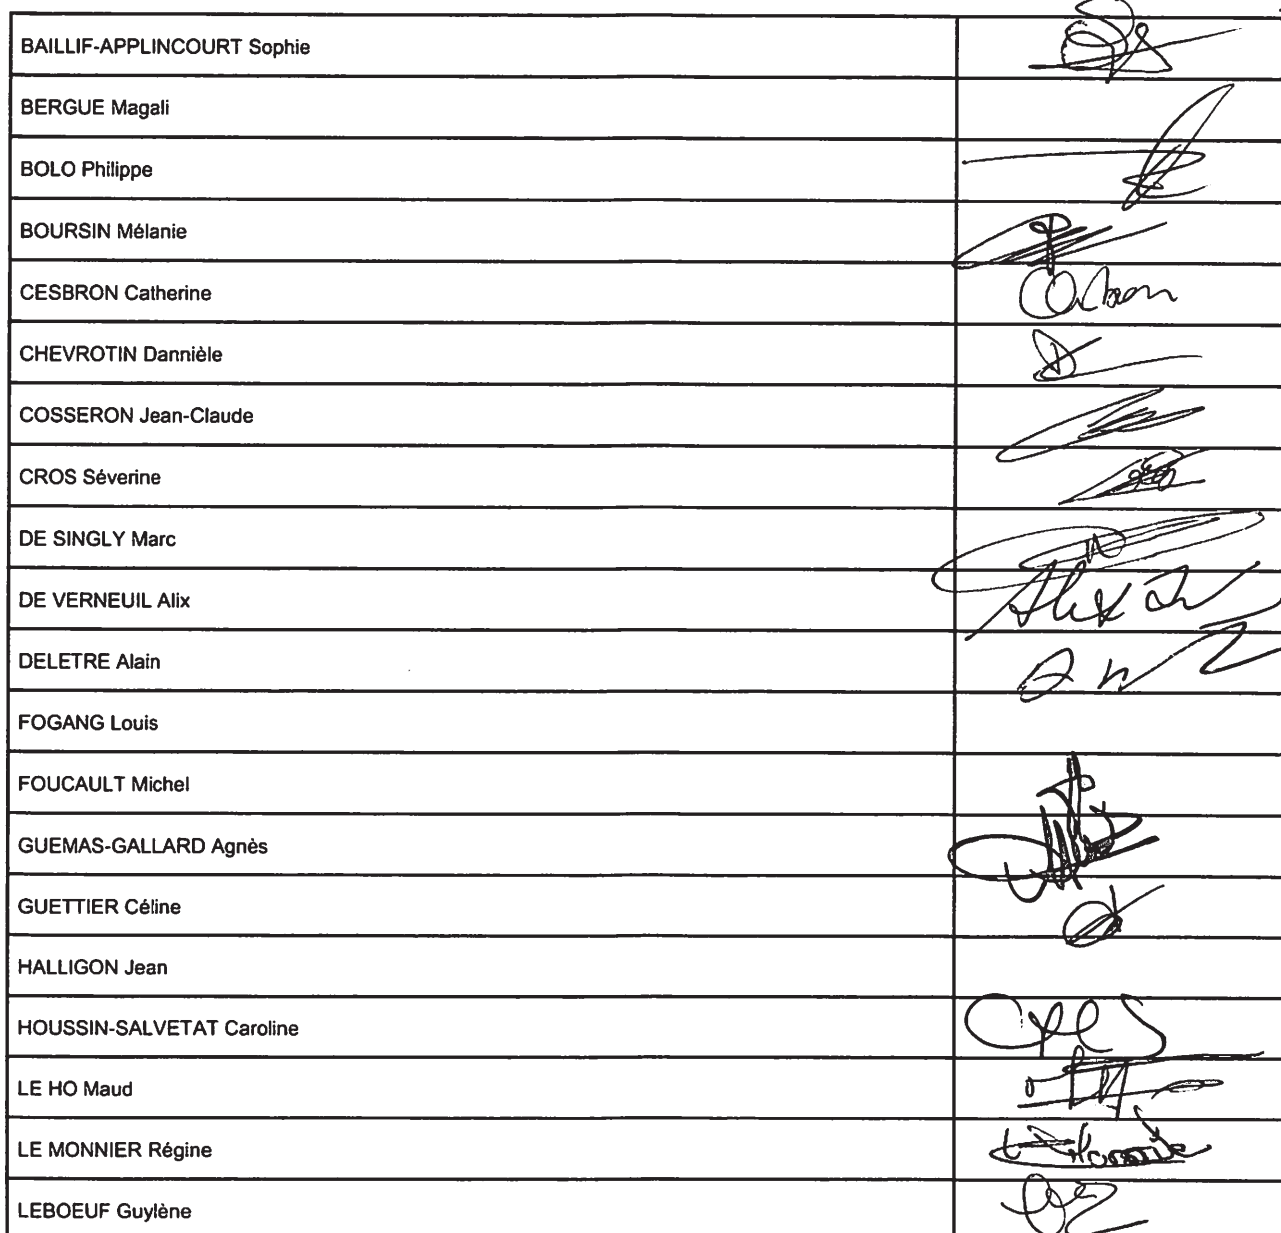 BAILLIF-APPLINCOURT Sophie
BERGUE Magali
BOLO Philippe
BOURSIN Mélanie
CESBRON Catherine
CHEVROTIN Dannièle
COSSERON Jean-Claude
CROS Séverine
DE SINGLY Marc
DE VERNEUIL Alix
Alix
DELETRE Alain
FOGANG Louis
FOUCAULT Michel
GUEMAS-GALLARD Agnès
GUETTIER Céline
HALLIGON Jean
HOUSSIN-SALVETAT Caroline
LE HO Maud
LE MONNIER Régine
LEBOEUF Guylène